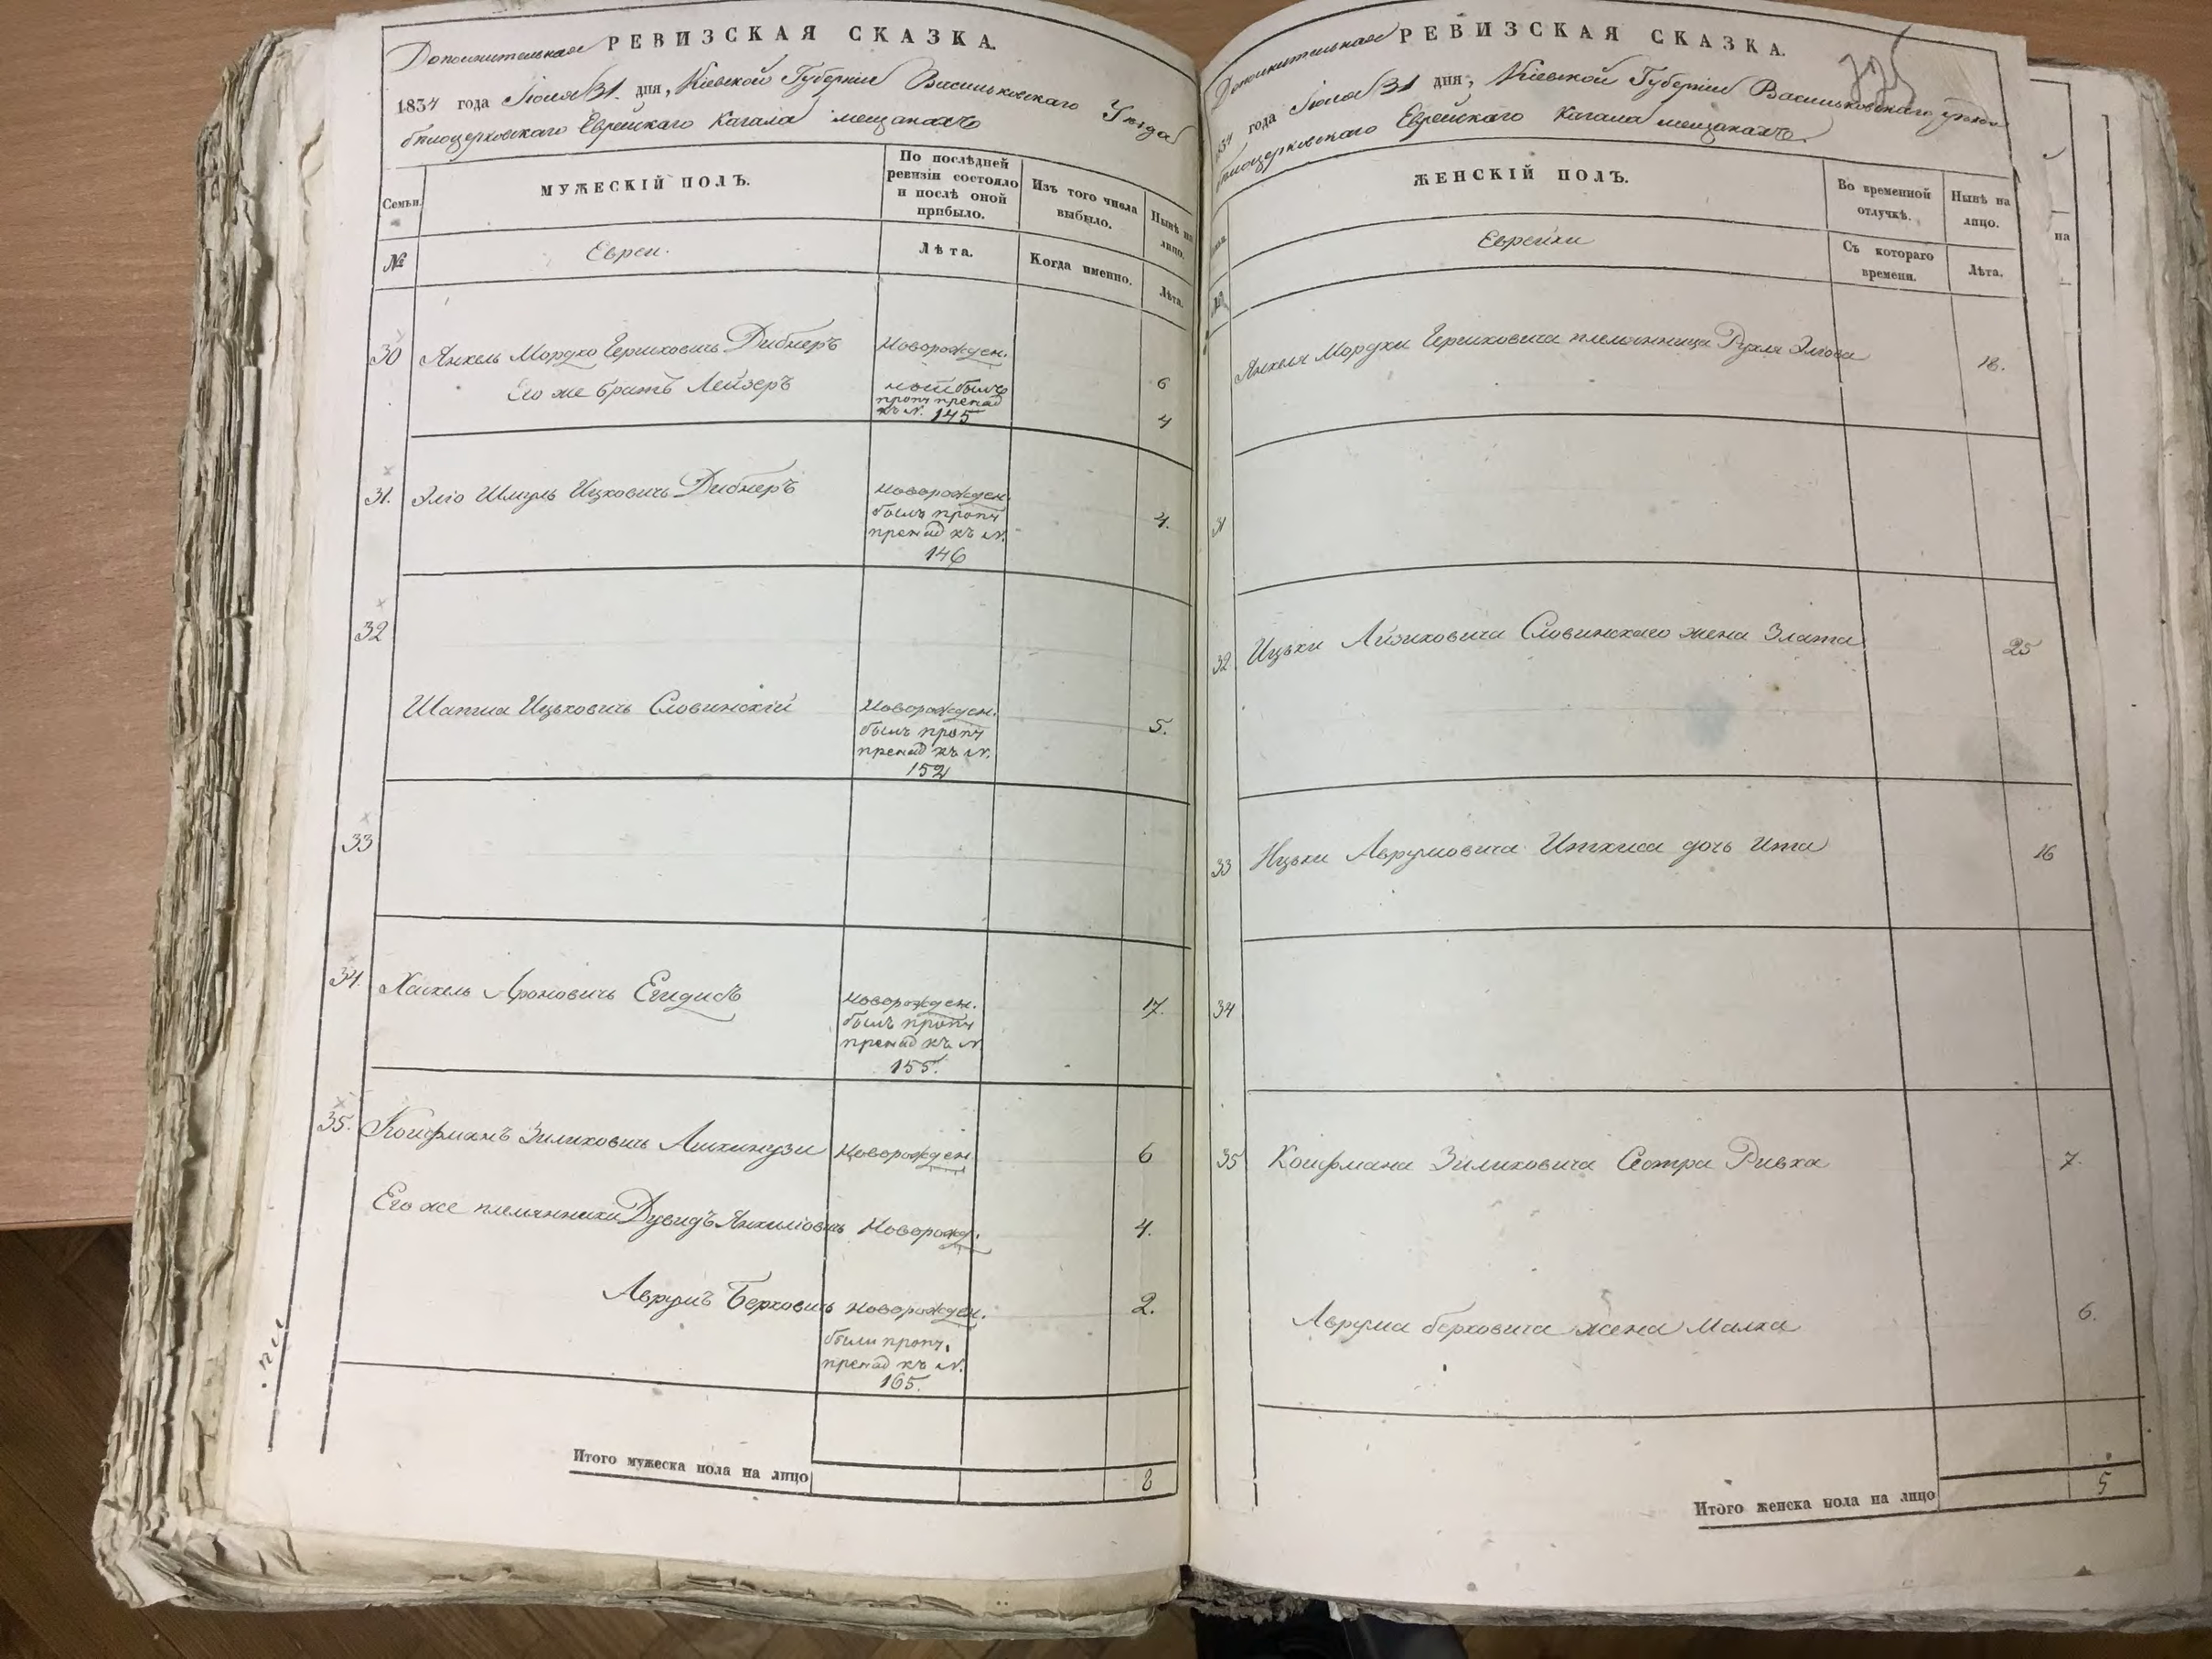 Дополнительная РЕВИЗСКАЯ СКАЗКА.
1834 года Іюля 31 дня, Кіевской Губерніи Васильковскаго Уезда
бѣлоцерковскаго Еврейскаго Кагала мещанахъ
Семьи.
МУЖЕСКІЙ ПОЛЪ.
По послѣдней ревизіи состояло и послѣ оной прибыло.
Изъ того числа выбыло.
Нынѣ на лицо.
№
Евреи.
Лѣта.
Когда именно.
Лѣта.
30 Янкель Мордко Гершковичь Дибнеръ Новорожден. 6
Его же братъ Лейзеръ 4
къ N. 145
31. Эліо Шмуль Ицковичь Дибнеръ Новорожден. 4.
былъ проп
пренад къ N.
146
32
Шапша Ицьковичь Словинскій Новорожден. 5.
былъ проп
пренад къ N.
152
33
34. Хаскель Ароновичь Егидисъ Новорожден. 17.
былъ проп
пренад къ N
155.
35. Коифманъ Зиликовичь Ашкинузи Новорожден 6
Его же племянники Дувидъ Янкиліовичь Новорожд. 4.
Аврумъ Берковичь новорожден. 2.
были проп.
пренад къ N.
165.
Итого мужеска пола на лицо 8
Дополнительная РЕВИЗСКАЯ СКАЗКА.
1834 года Іюля 31 дня, Кіевской Губерніи Васильковскаго уезда
бѣлоцерковскаго Еврейскаго Кагала мещанахъ.
ЖЕНСКІЙ ПОЛЪ.
Во временной отлучкѣ.
Нынѣ на лицо.
Еврейки
Съ котораго времени.
Лѣта.
Янкеля Мордки Гершковича племянница Рухля Эліова 18.
31
32 Ицьки Айзиковича Словинскаго жена Злата 25
33 Ицьки Аврумовича Иткиса дочь Ита 16
34
35 Коифмана Зиликовича Сестра Ривка 7.
Аврума берковича жена Малка 6.
Итого женска пола на лицо 5